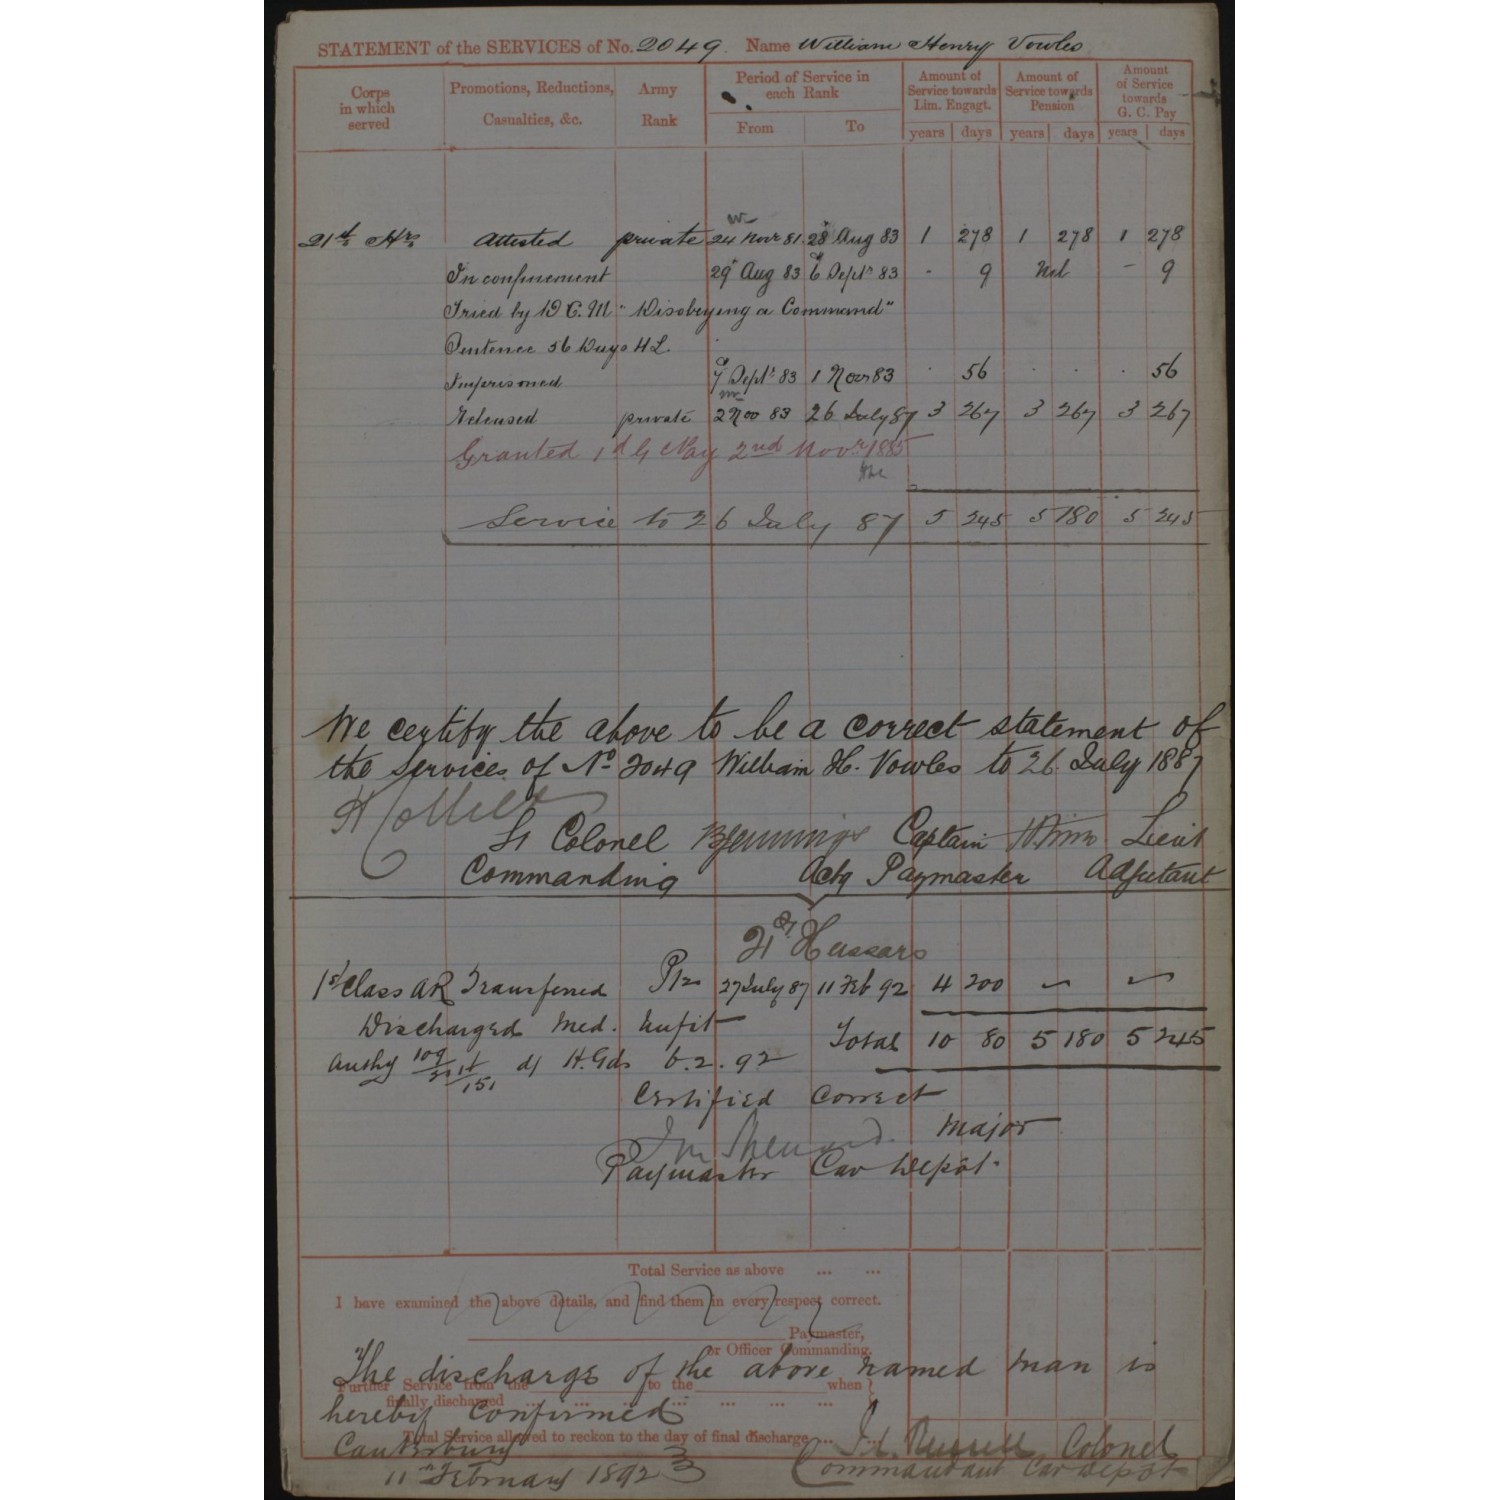 STATEMENT of the SERVICES of No. 2049 Name William Henry Vowles
Corps in which served
Promotions, Reductions, Casualties, &c.
Army Rank
Period of Service in each Rank
From To
Amount of Service towards Lim. Engagt.
years days
Amount of Service towards Pension
years days
Amount of Service towards G. C. Pay
years days
21st Hrs Attested private 24 Novr 81 28 Aug 83 1 278 1 278 1 278
In confinement 29 Aug 83 6 Septr 83 - 9 Nil - 9
Tried by D C. M "Disobeying a Command"
Sentence 56 Days H L.
Imprisoned 7 Septr 83 1 Novr 83 . 56 . . . 56
Released private 2 Nov 83 26 July 87 3 267 3 267 3 267
Granted 1d G C Pay 2nd Novr 1885
Service to 26 July 87 5 245 5 180 5 245
We certify the above to be a correct statement of
the services of No 2049 William H. Vowles to 26 July 1887
Lt Colonel B Jennings Captain Lieut
Commanding Actg Paymaster Adjutant
21st Hussars
1st Class AR Transferred Pte 27 July 87 11 Feb 92 4 200
Discharged Med. Unfit Total 10 80 5 180 5 245
Authy 109/21st/151 d/ H. Gds 6.2.92
Certified Correct
Major
Paymaster Cav Depôt.
Total Service as above ... ...
I have examined the above details, and find them in every respect correct.
Paymaster,
or Officer Commanding.
The discharge of the above named man is
Further Service from the to the when
finally discharged ... ... ... ... ... ...
hereby Confirmed
Total Service allowed to reckon to the day of final discharge ... ...
Canterbury Russell Colonel
11th February 1892 Commandant Cav Depôt